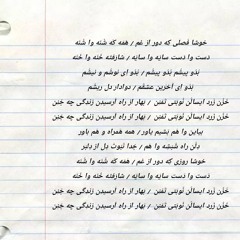 خوشا فصلی که دور از غم / همه که شنه وا شنه
دست وا دست سایه وا سایه / شارفته خنه وا خنه
بدو پیشم بدو پیشم / بدو ای نوشم و نیشم
بدو ای آخرین عشقم / دوادار دل ریشم
خزن زرد ایسالن نوبتی تفتن / بهار از راه ارسیدن زندگی چه جنن
خزن زرد ایسالن نوبتی تفتن / بهار از راه ارسیدن زندگی چه جنن
بیاین وا هم بشیم یاور / همه همراه و هم باور
دلن راه شیشه وا هم / جدا نبوت دل از دلبر
خوشا روزی که دور از غم / همه که شنه وا شنه
دست وا دست سایه وا سایه / شارفته خنه وا خنه
خزن زرد ایسالن نوبتی تفتن / بهار از راه ارسیدن زندگی چه جنن
خزن زرد ایسالن نوبتی تفتن / بهار از راه ارسیدن زندگی چه جنن